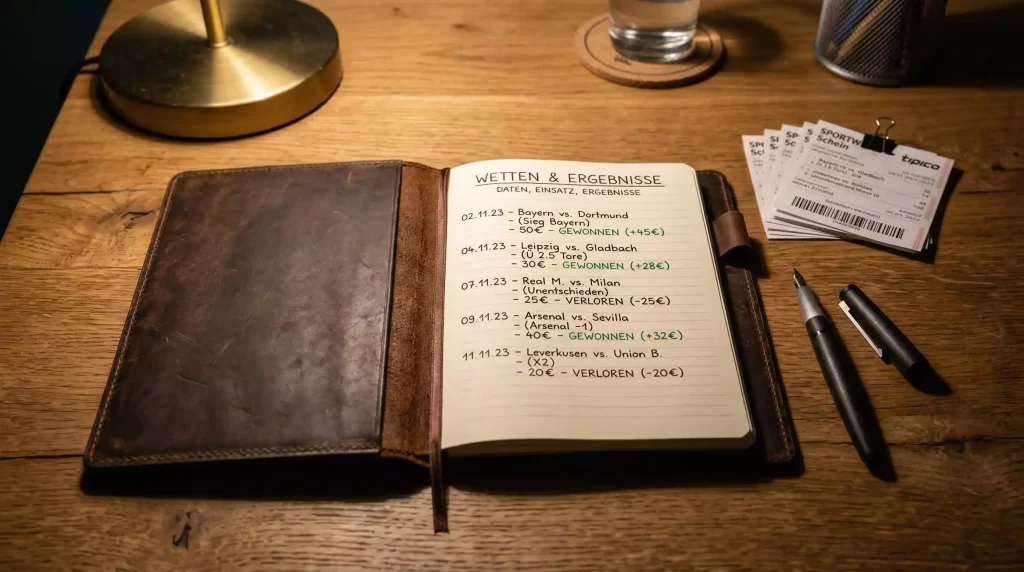 WETTEN & ERGEBNISSE
DATEN, EINSATZ, ERGEBNISSE
02.11.23 - Bayern vs. Dortmund
- (Sieg Bayern)
- 50€ - GEWONNEN (+45€)
04.11.23 - Leipzig vs. Gladbach
- (Ü 2.5 Tore)
- 30€ - GEWONNEN (+28€)
07.11.23 - Real M. vs. Milan
- (Unentschieden)
- 25€ - VERLOREN (-25€)
09.11.23 - Arsenal vs. Sevilla
- (Arsenal -1)
- 40€ - GEWONNEN (+32€)
11.11.23 - Leverkusen vs. Union B.
- (X2)
- 20€ - VERLOREN (-20€)
SPORTW
Schein
tipico